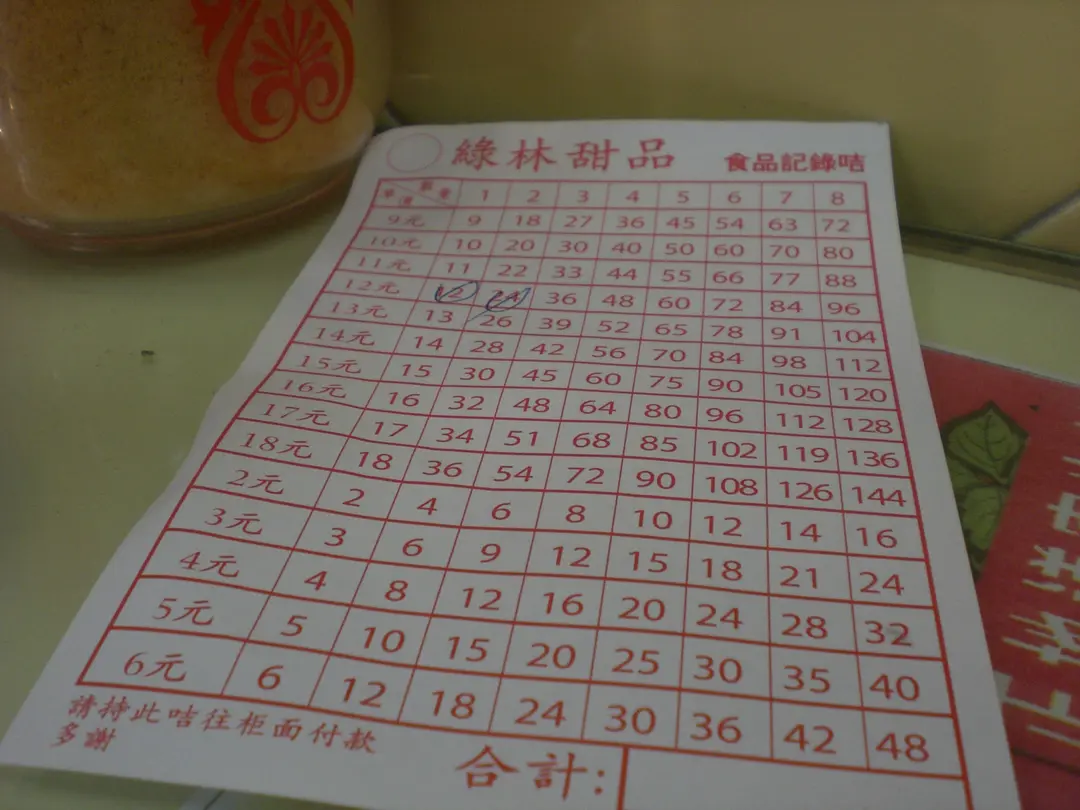 綠林甜品 食品記錄咭
單價 數量 1 2 3 4 5 6 7 8
9元 9 18 27 36 45 54 63 72
10元 10 20 30 40 50 60 70 80
11元 11 22 33 44 55 66 77 88
12元 12 24 36 48 60 72 84 96
13元 13 26 39 52 65 78 91 104
14元 14 28 42 56 70 84 98 112
15元 15 30 45 60 75 90 105 120
16元 16 32 48 64 80 96 112 128
17元 17 34 51 68 85 102 119 136
18元 18 36 54 72 90 108 126 144
2元 2 4 6 8 10 12 14 16
3元 3 6 9 12 15 18 21 24
4元 4 8 12 16 20 24 28 32
5元 5 10 15 20 25 30 35 40
6元 6 12 18 24 30 36 42 48
請持此咭往柜面付款
多謝
合計: